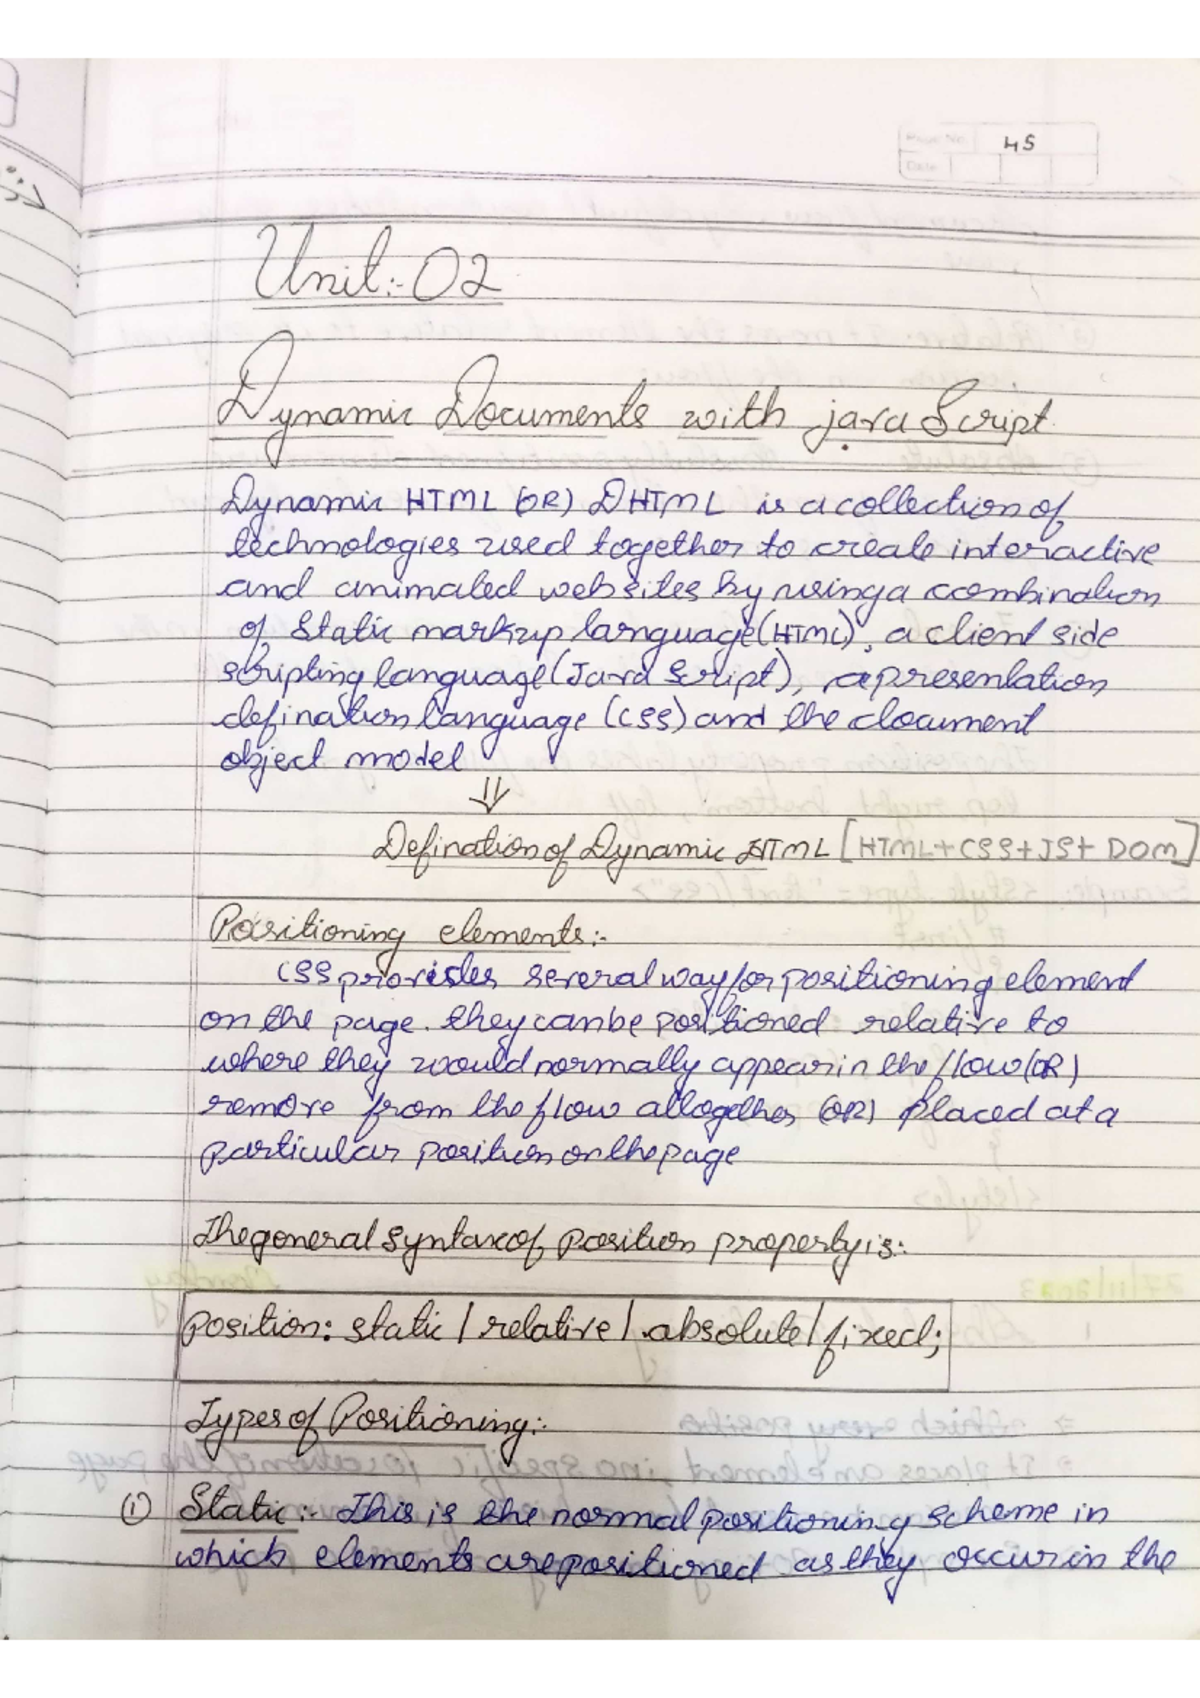 Page No. 45
Date
Unit:- 02
Dynamic Documents with javaScript
Dynamic HTML (OR) DHTML is a collection of
technologies used together to create interactive
and animated websites by using a combination
of static markup language (HTML), a client side
scripting language (JavaScript), a presentation
defination language (CSS) and the document
object model
⇓
Defination of Dynamic HTML [HTML+CSS+JS+DOM]
Positioning elements:-
CSS provides several way for positioning element
on the page. they can be positioned relative to
where they would normally appear in the flow (OR)
remove from the flow altogether (OR) placed at a
particular position on the page
The general syntax of position property is:
Position: static / relative / absolute / fixed;
Types of Positioning:-
(1) Static:- This is the normal positioning scheme in
which elements are positioned as they occur in the